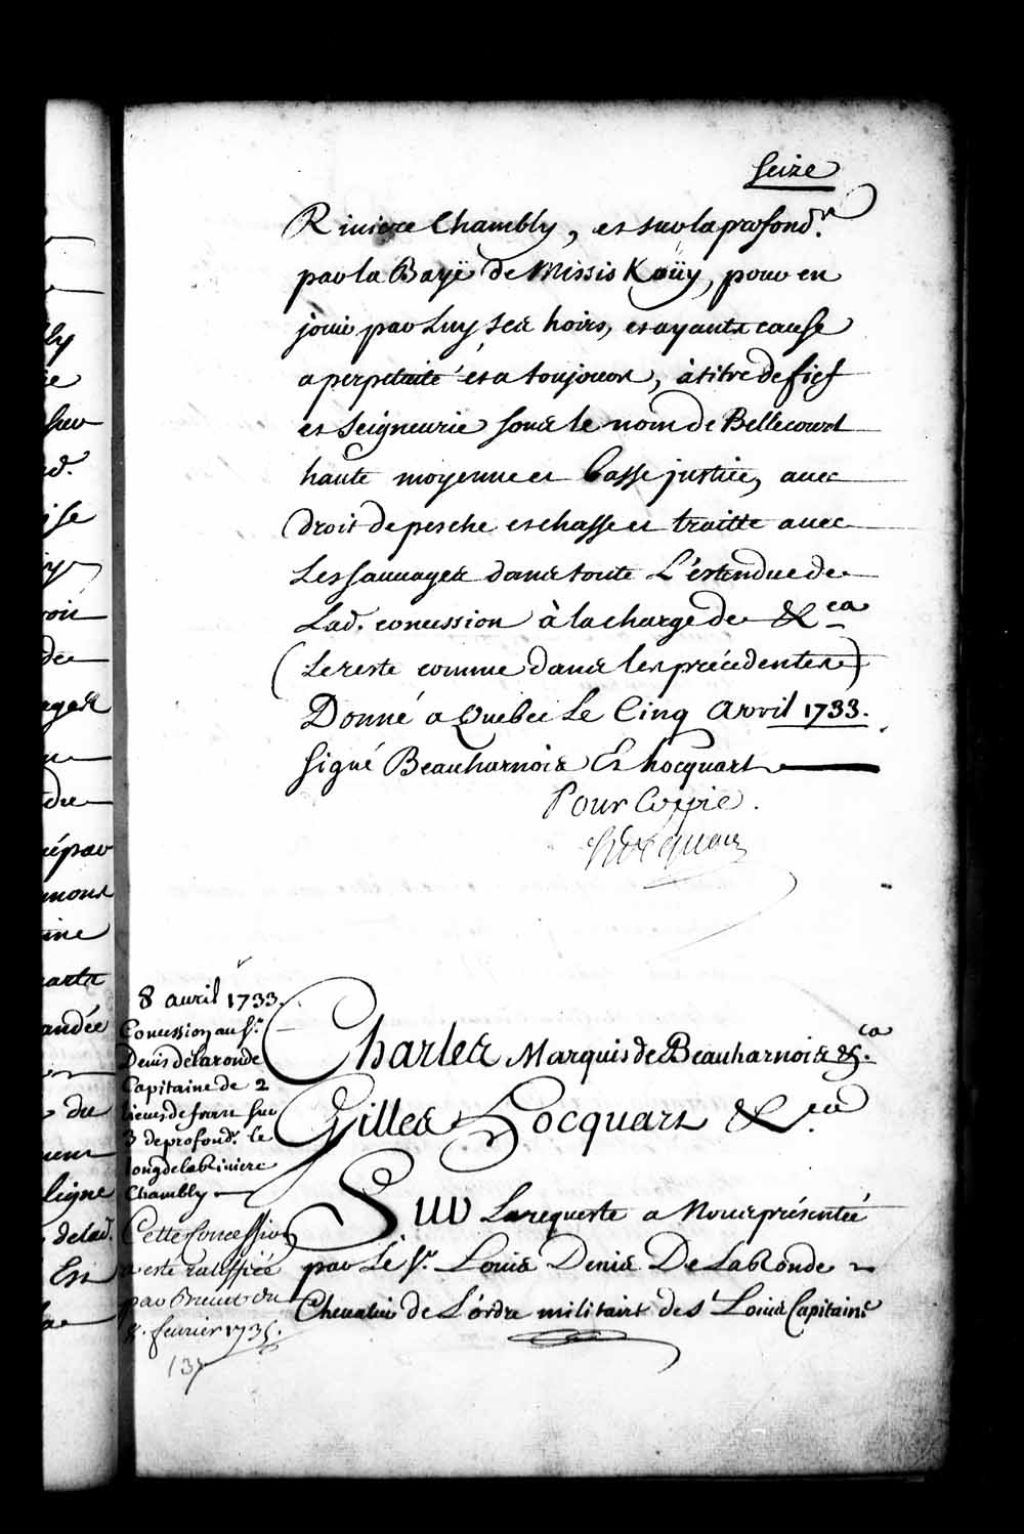 Seize
Riviere Chambly, et sur la profond.r
par la Baÿe de MissisKoüy, pour en
jouir par Luy ses hoirs, et ayants cause
a perpetuité et a toujours, à titre de fief
et Seigneurie sous le nom de Bellecourt
haute moyenne et basse justice, avec
droit de pesche et chasse et traitte avec
Les sauvages dans toute L'estendue de
Lad. concession à la charge de &ca
(Le reste comme dans les précédentes)
Donné a Quebec Le Cinq Avril 1733.
Signé Beauharnois Et hocquart
Pour Coppie.
Hocquart
8 avril 1733.
Concession au Sr.
Denis de la ronde
Capitaine de 2
lieues de front sur
3 de profond.r le
long de la Riviere
Chambly
Cette Concession
a esté ratiffiée
par Brevet du
8. fevrier 1735.
137
Charles Marquis de Beauharnois &ca.
Gilles Hocquart &ca.
Sur La requeste a Nous présentée
par Le Sr. Louis Denis De La Ronde
Chevalier de L'ordre militaire de St Louis Capitaine
ly
re
sur
d.
ise
oir
de
ages
du
épar
mons
ine
arte
andée
du
ligne
de lad.
Est